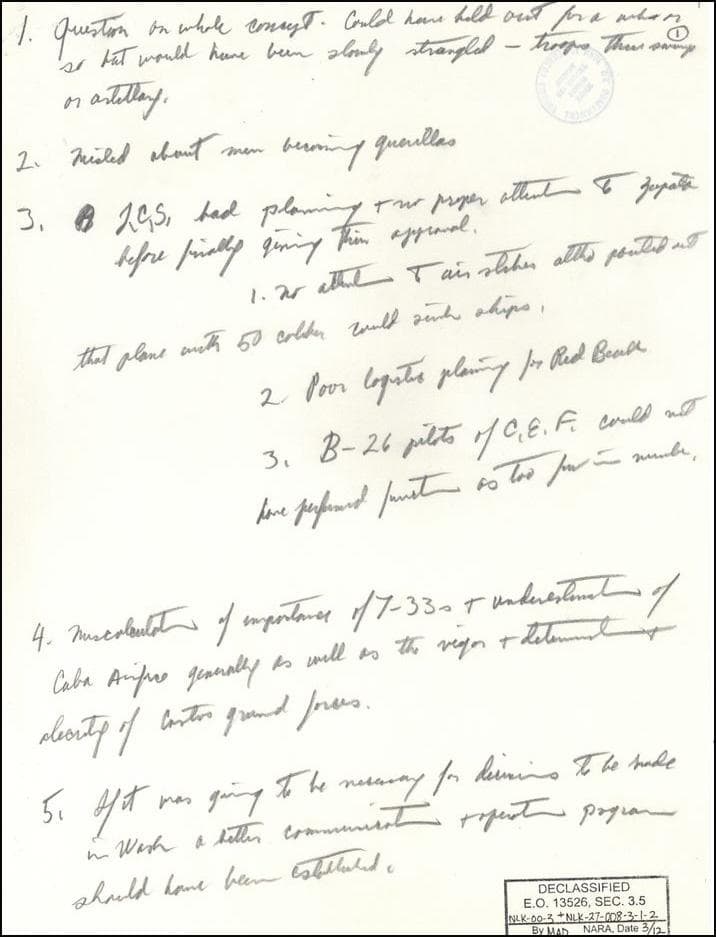 1. Question on whole concept. Could have held out for a while or
so but would have been slowly strangled – troops thru swamp
①
or artillery.
2. Misled about men becoming guerillas
3. J.C.S. bad planning + no proper attention to Zapata
before finally giving their approval.
1. no attention to air strikes altho pointed out
that plane with 50 caliber could sink ships.
2. Poor logistic planning for Red Beach
3. B-26 pilots of C.E.F. could not
have performed function as too few in number.
4. Miscalculation of importance of T-33s + underestimation of
Cuba Airforce generally as well as the vigor + determination +
alacrity of Castros ground forces.
5. If it was going to be necessary for decisions to be made
in Wash a better communication + operation program
should have been established.
DECLASSIFIED
E.O. 13526, SEC. 3.5
NLK-00-3 + NLK-27-008-3-1-2
By MAD NARA, Date 3/12